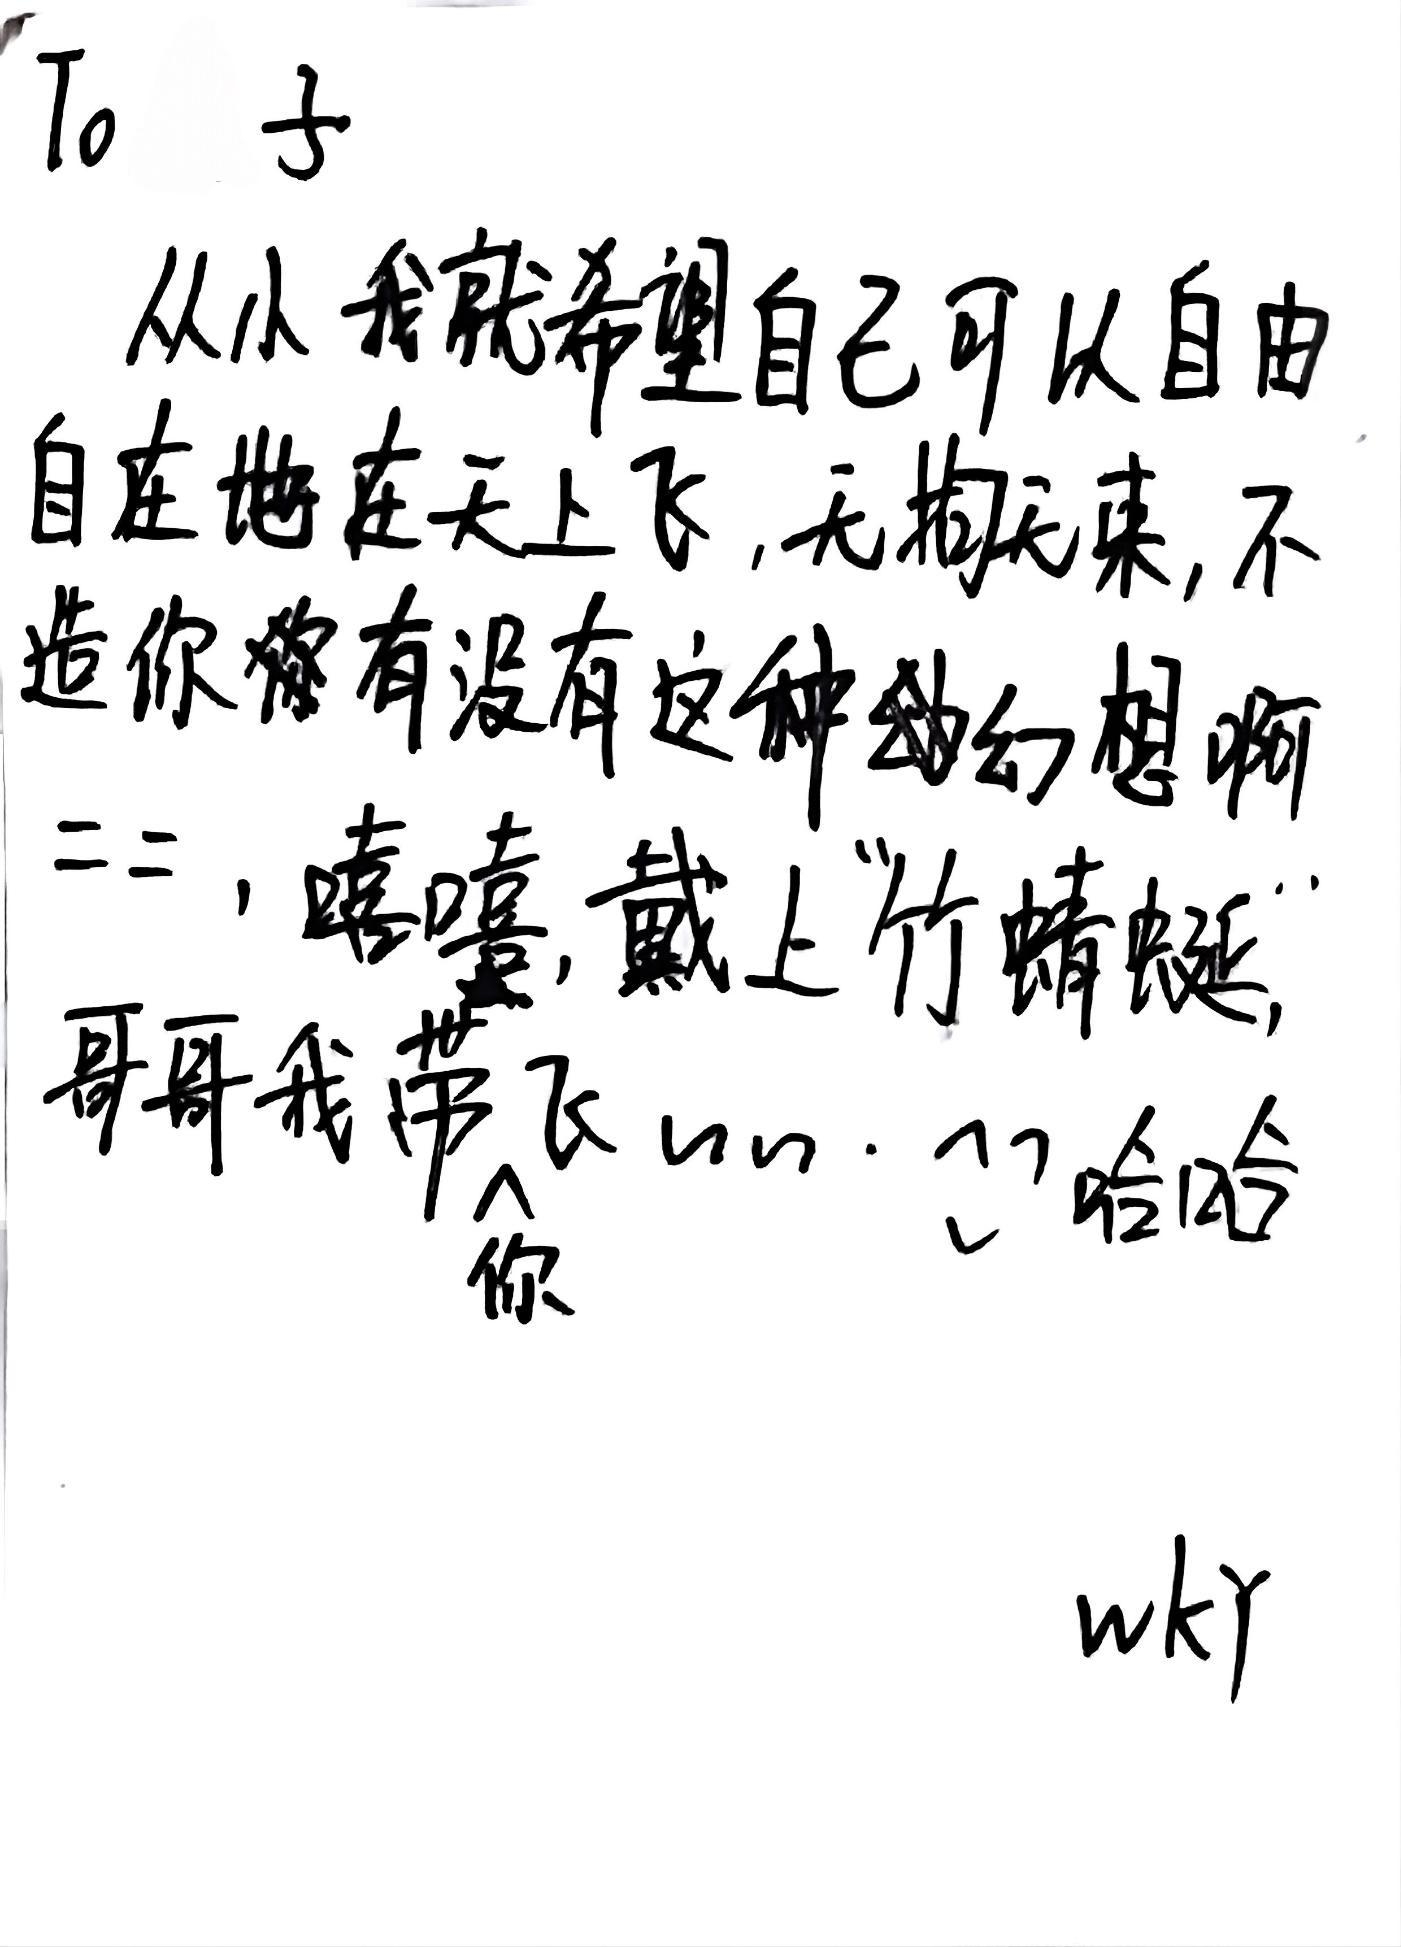 To 子
从小我就希望自己可以自由
自在地在天上飞，无拘无束，不
造你有没有这种幻想啊
==，嘻嘻，戴上“竹蜻蜓”，
哥哥我带你飞~~.^^哈哈
wky